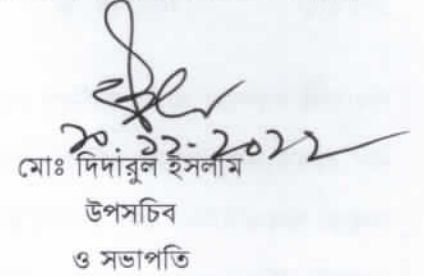 ২০.১২.২০২২
মোঃ দিদারুল ইসলাম
উপসচিব
ও সভাপতি